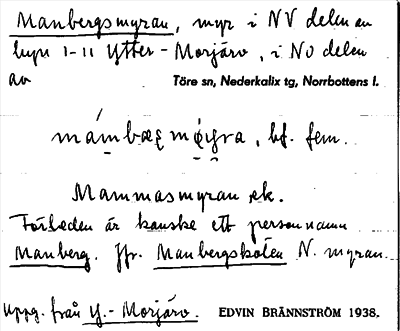 Manbergsmyran, myr i NV delen av
byn 1-11 Ytter-Morjärv, i NO delen
av Töre sn, Nederkalix tg, Norrbottens l.
mámbæʀ mǫ́yra, bf. fem.
Mammasmyran ek.
Förleden är kanske ett personnamn
Manberg. Jfr. Manbergskölen N. myran.
Uppg. från Y.-Morjärv. EDVIN BRÄNNSTRÖM 1938.